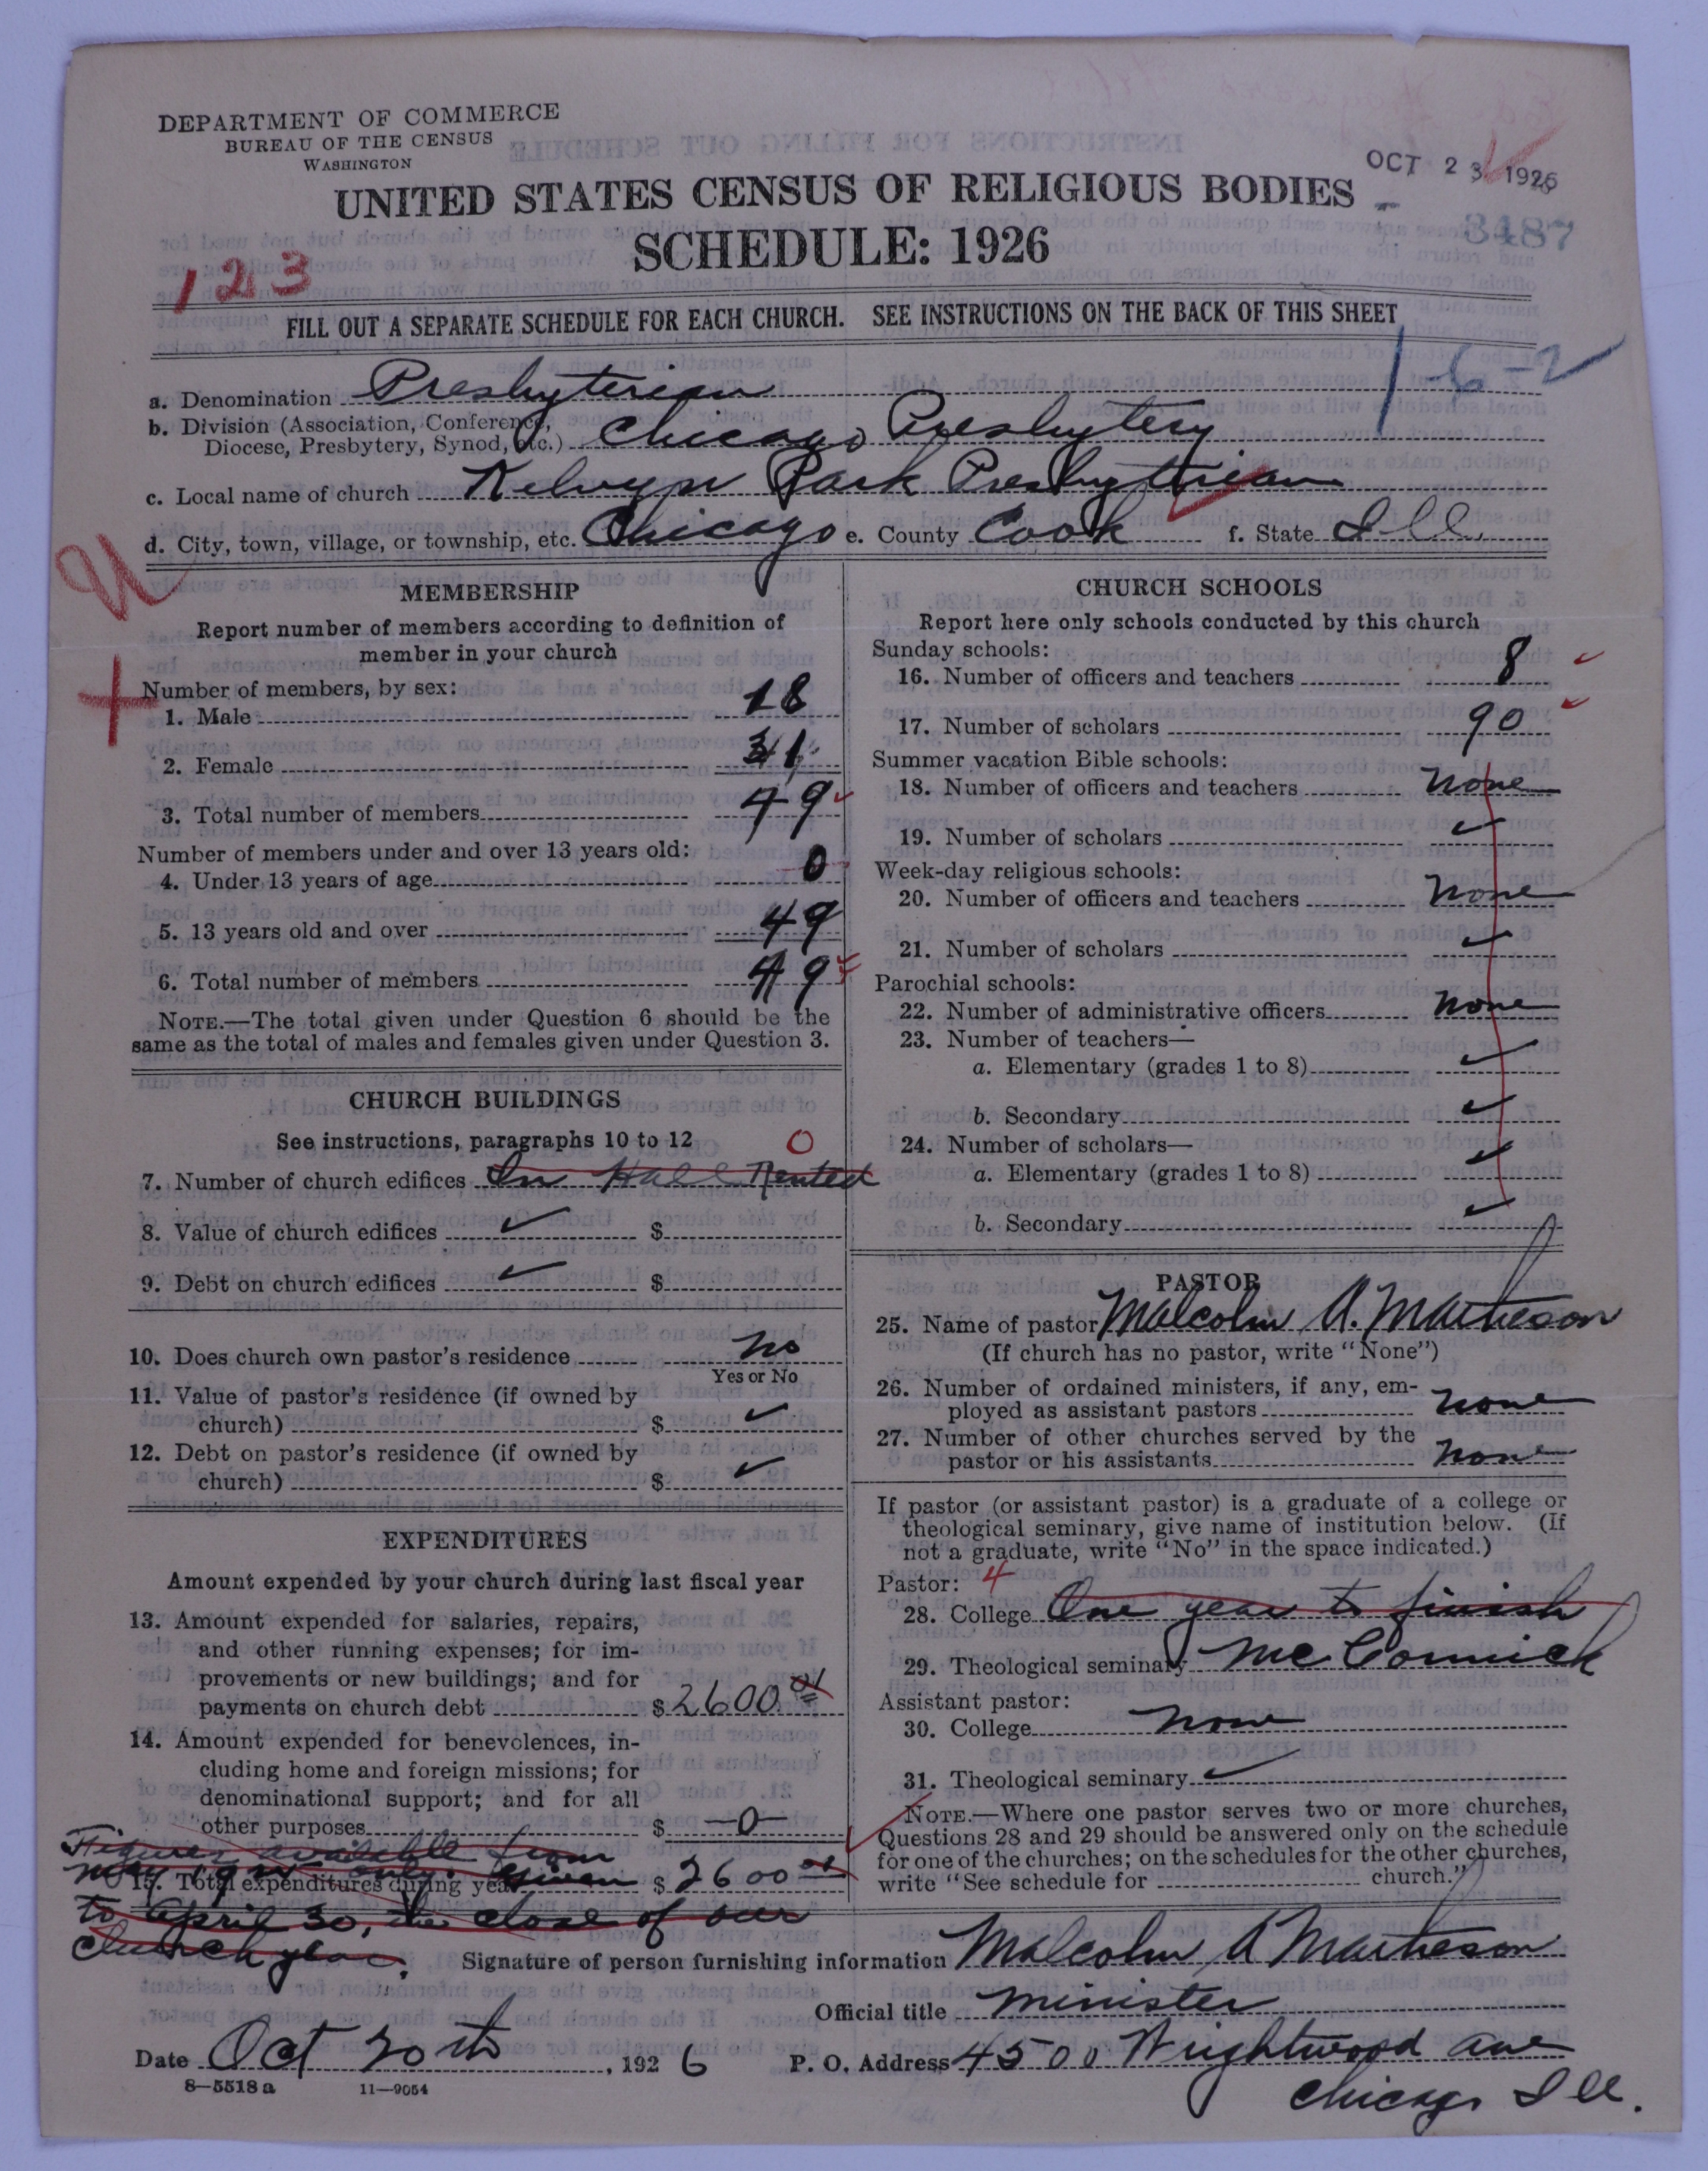 DEPARTMENT OF COMMERCE
BUREAU OF THE CENSUS
WASHINGTON
OCT 23 1926
UNITED STATES CENSUS OF RELIGIOUS BODIES
3487
SCHEDULE: 1926
123
FILL OUT A SEPARATE SCHEDULE FOR EACH CHURCH. SEE INSTRUCTIONS ON THE BACK OF THIS SHEET
1-6-2
a. Denomination Presbyterian
b. Division (Association, Conference,
Diocese, Presbytery, Synod, etc.) Chicago Presbytery
c. Local name of church Kelvyn Park Presbyterian
d. City, town, village, or township, etc. Chicago e. County Cook f. State Ill.
MEMBERSHIP
Report number of members according to definition of
member in your church
Number of members, by sex:
1. Male 18
2. Female 31
3. Total number of members 49
Number of members under and over 13 years old:
4. Under 13 years of age 0
5. 13 years old and over 49
6. Total number of members 49
NOTE.—The total given under Question 6 should be the
same as the total of males and females given under Question 3.
CHURCH BUILDINGS
See instructions, paragraphs 10 to 12
0
7. Number of church edifices In Hall Rented
8. Value of church edifices ✓ $
9. Debt on church edifices ✓ $
10. Does church own pastor's residence No
Yes or No
11. Value of pastor's residence (if owned by
church) $ ✓
12. Debt on pastor's residence (if owned by
church) $ ✓
EXPENDITURES
Amount expended by your church during last fiscal year
13. Amount expended for salaries, repairs,
and other running expenses; for im-
provements or new buildings; and for
payments on church debt $ 2600
14. Amount expended for benevolences, in-
cluding home and foreign missions; for
denominational support; and for all
other purposes $ —0—
Figures available from
May 19 only. Given
15. Total expenditures during year $ 2600
to April 30, the close of our
church year.
CHURCH SCHOOLS
Report here only schools conducted by this church
Sunday schools:
16. Number of officers and teachers 8
17. Number of scholars 90
Summer vacation Bible schools:
18. Number of officers and teachers None
19. Number of scholars ✓
Week-day religious schools:
20. Number of officers and teachers None
21. Number of scholars ✓
Parochial schools:
22. Number of administrative officers None
23. Number of teachers—
a. Elementary (grades 1 to 8) ✓
b. Secondary ✓
24. Number of scholars—
a. Elementary (grades 1 to 8) ✓
b. Secondary ✓
PASTOR
25. Name of pastor Malcolm A. Matheson
(If church has no pastor, write "None")
26. Number of ordained ministers, if any, em-
ployed as assistant pastors None
27. Number of other churches served by the
pastor or his assistants None
If pastor (or assistant pastor) is a graduate of a college or
theological seminary, give name of institution below. (If
not a graduate, write "No" in the space indicated.)
Pastor: 4
28. College One year to finish
29. Theological seminary McCormick
Assistant pastor:
30. College None
31. Theological seminary ✓
NOTE.—Where one pastor serves two or more churches,
Questions 28 and 29 should be answered only on the schedule
for one of the churches; on the schedules for the other churches,
write "See schedule for church."
Signature of person furnishing information Malcolm A Matheson
Official title Minister
Date Oct 20th, 1926 P. O. Address 4500 Wrightwood Ave
Chicago Ill.
8—5518a 11—9054